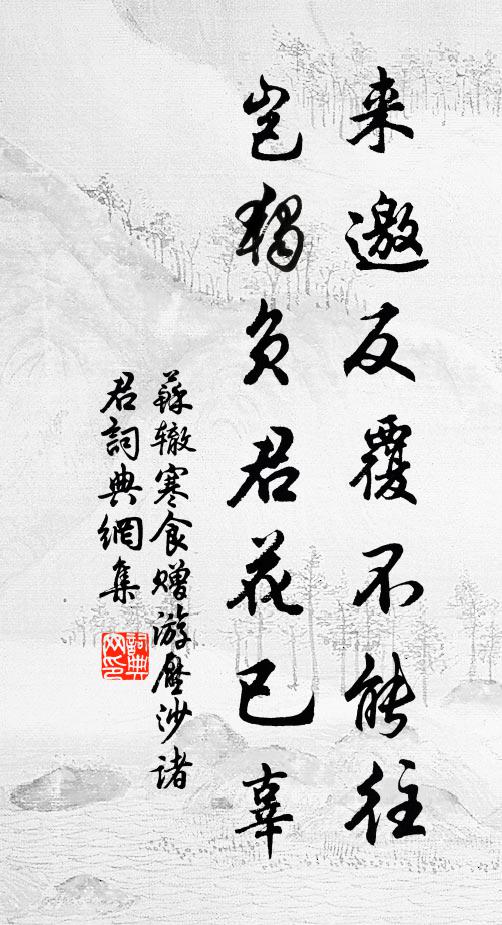 来邀反覆不能往
岂独負君花已辜
蘇辙寒食赠游压沙诸
君詞典網集
詞典网印